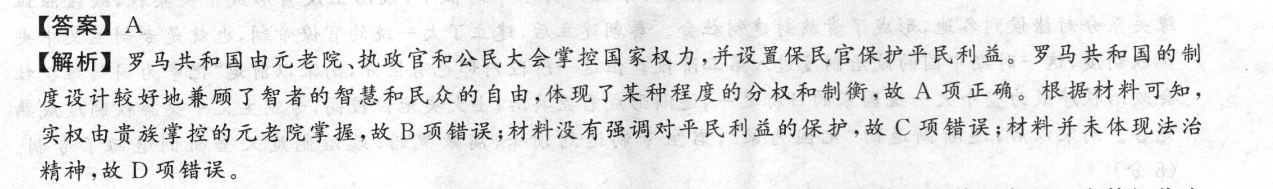 【答案】A
【解析】罗马共和国由元老院、执政官和公民大会掌控国家权力,并设置保民官保护平民利益。罗马共和国的制
度设计较好地兼顾了智者的智慧和民众的自由,体现了某种程度的分权和制衡,故 A 项正确。根据材料可知,
实权由贵族掌控的元老院掌握,故 B 项错误;材料没有强调对平民利益的保护,故 C 项错误;材料并未体现法治
精神,故 D 项错误。